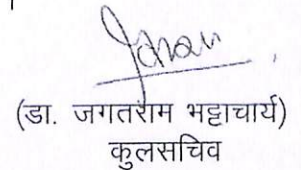 (डा. जगतराम भट्टाचार्य)
कुलसचिव